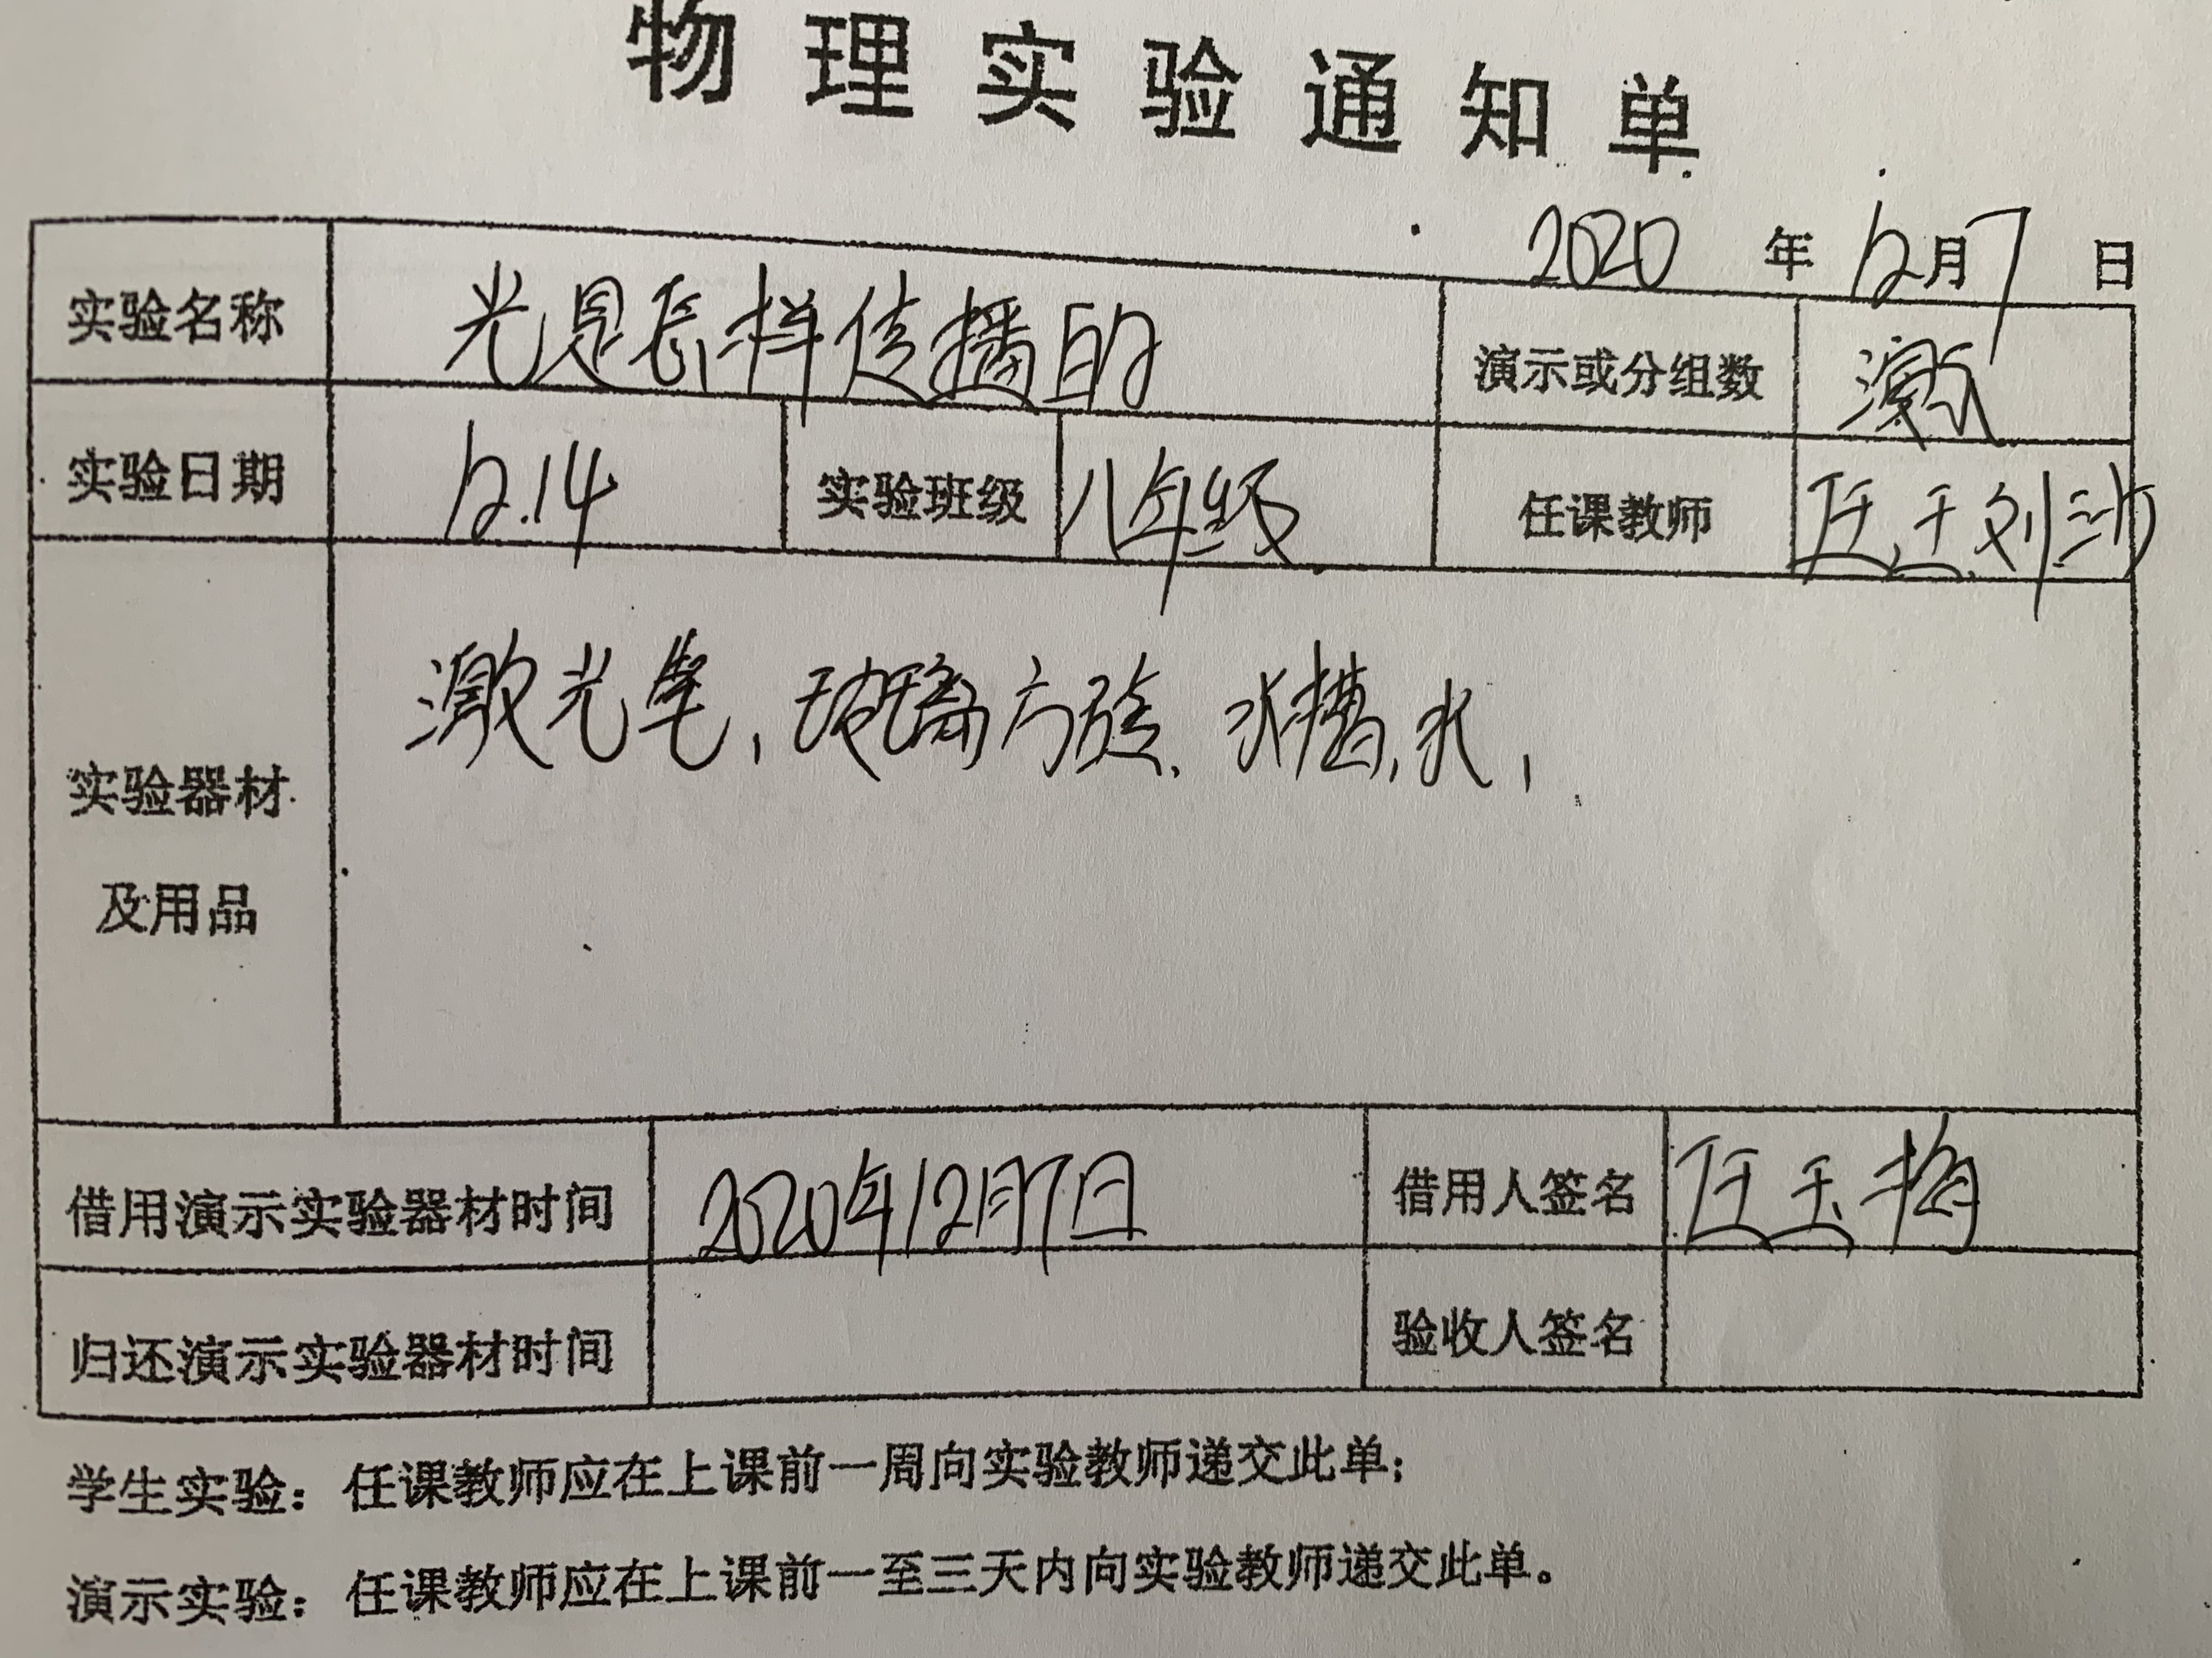 物理实验通知单
2020年12月7日
实验名称 光是怎样传播的 演示或分组数 演示
实验日期 12.14 实验班级 八年级 任课教师 任玉 刘
实验器材及用品 激光笔,玻璃方砖、水槽,水,
借用演示实验器材时间 2020年12月7日 借用人签名 任玉梅
归还演示实验器材时间 验收人签名
学生实验：任课教师应在上课前一周向实验教师递交此单；
演示实验：任课教师应在上课前一至三天内向实验教师递交此单。